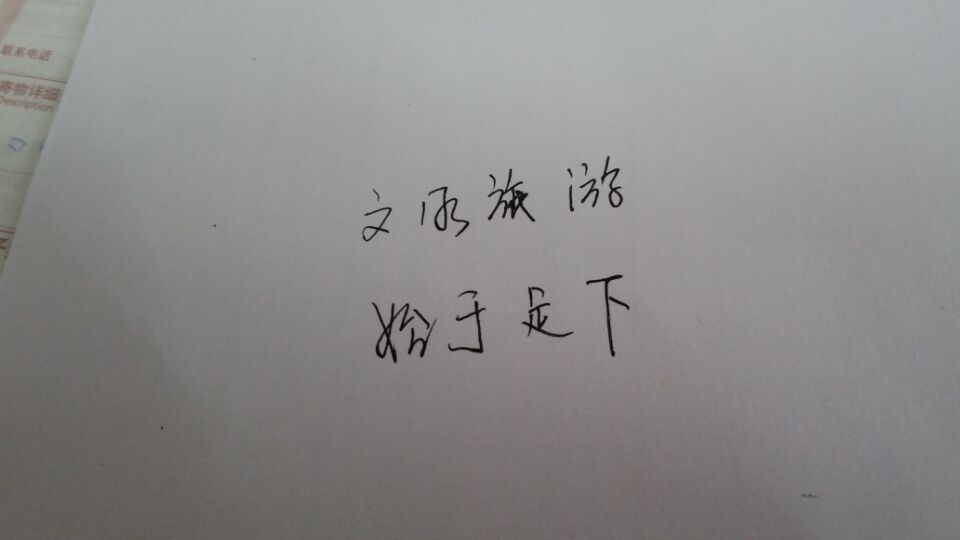 联系电话
寄物详细
Description
文明旅游
始于足下